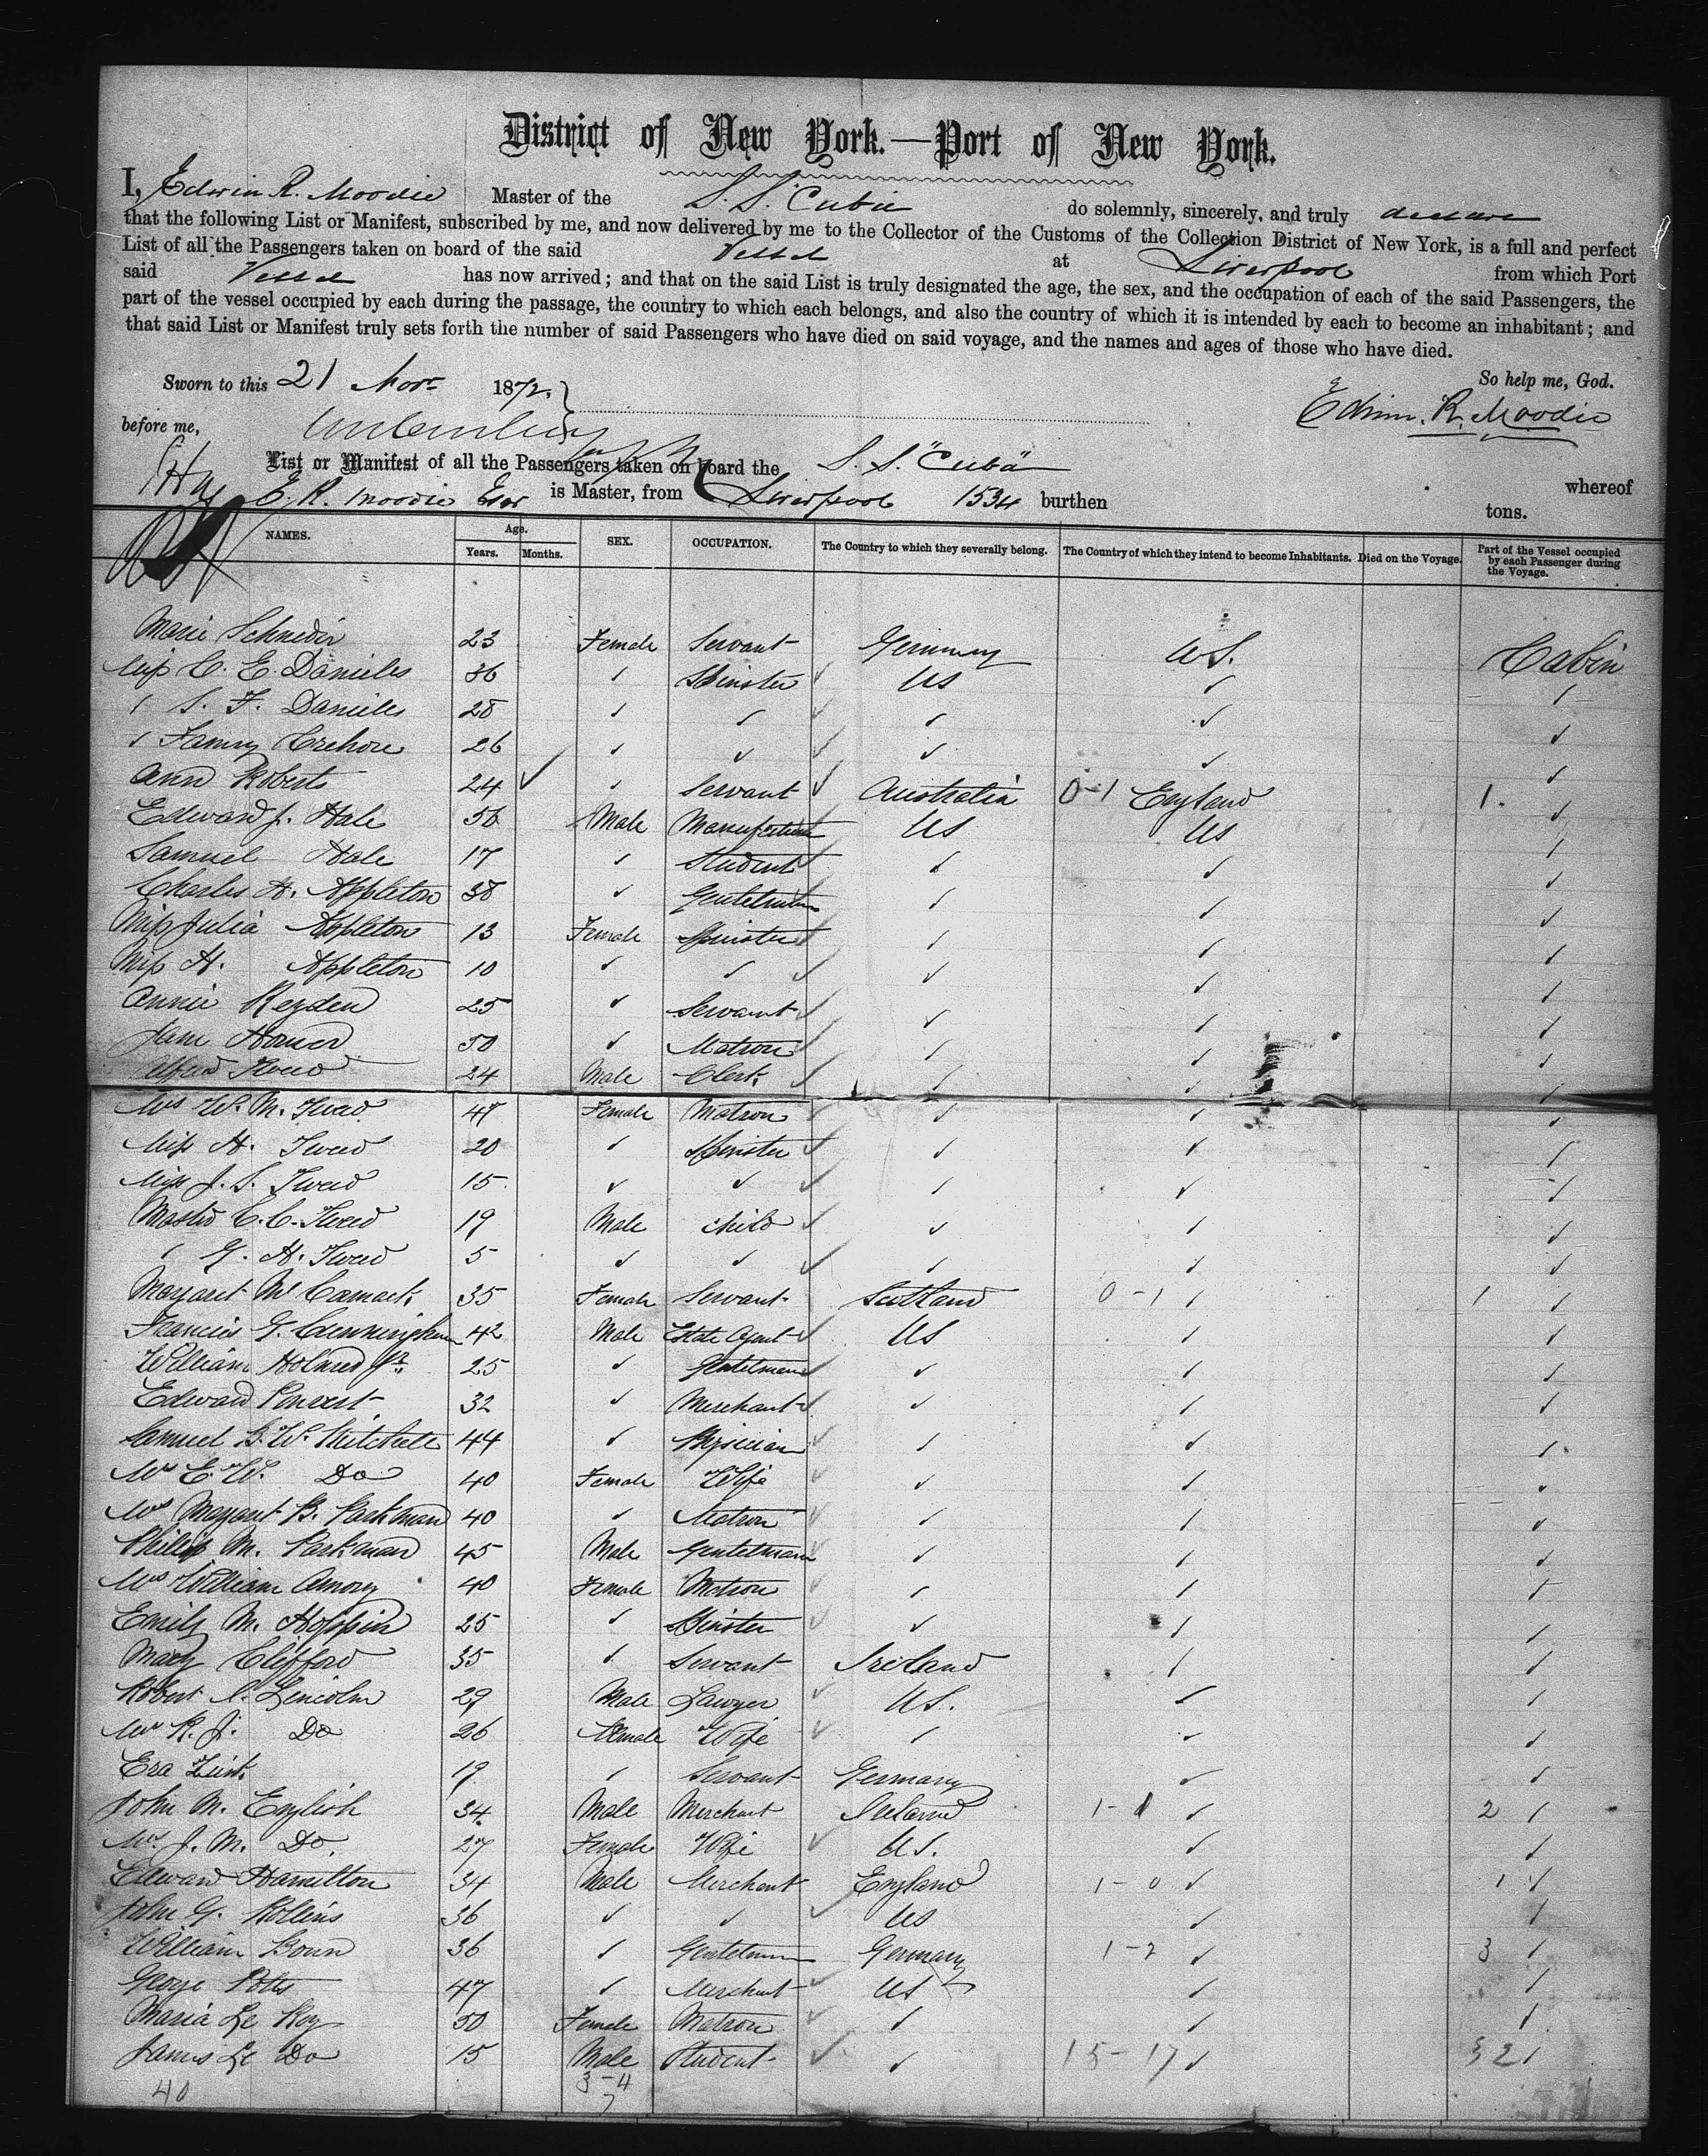 District of New York.—Port of New York.
I, Edwin R. Moodie Master of the S.S. Cuba do solemnly, sincerely, and truly declare
that the following List or Manifest, subscribed by me, and now delivered by me to the Collector of the Customs of the Collection District of New York, is a full and perfect
List of all the Passengers taken on board of the said Vessel at Liverpool from which Port
said Vessel has now arrived; and that on the said List is truly designated the age, the sex, and the occupation of each of the said Passengers, the
part of the vessel occupied by each during the passage, the country to which each belongs, and also the country of which it is intended by each to become an inhabitant; and
that said List or Manifest truly sets forth the number of said Passengers who have died on said voyage, and the names and ages of those who have died.
Sworn to this 21 Nov 1872. So help me, God.
before me, Edwin. R. Moodie
List or Manifest of all the Passengers taken on board the S.S. "Cuba" whereof
E. R. Moodie Esqr is Master, from Liverpool 1534 burthen tons.
NAMES. Age. Years. Months. SEX. OCCUPATION. The Country to which they severally belong. The Country of which they intend to become Inhabitants. Died on the Voyage. Part of the Vessel occupied by each Passenger during the Voyage.
Marie 23 Female Servant Germany U S. Cabin
Miss C. E. Daniells 36 Spinster ✓ US ✓
S. F. Daniells 28 ✓ ✓ ✓ ✓ ✓ ✓
Fanny Crehore 26 ✓ ✓ ✓ ✓ ✓ ✓
Ann Roberts 24 ✓ ✓ Servant ✓ Australia 0-1 England 1. ✓
Edward J. Hale 56 Male US US
Samuel Hale 17 ✓ Student ✓ ✓ ✓ ✓
Charles H. Appleton 38 ✓ Gentelman ✓ ✓ ✓
Miss Julia Appleton 13 Female Spinster ✓ ✓ ✓ ✓
Miss H. Appleton 10 ✓ ✓ ✓ ✓ ✓ ✓
Annie Reyden 25 ✓ Servant ✓ ✓ ✓ ✓
Jane 50 ✓ Matron ✓ ✓ ✓ ✓
Alfred Tweed 24 Male Clerk ✓ ✓ ✓ ✓
Mrs W. M. Tweed 47 Female Matron ✓ ✓ ✓ ✓
Miss H. Tweed 20 ✓ Spinster ✓ ✓ ✓ ✓
Miss J. S. Tweed 15 ✓ ✓ ✓ ✓ ✓ ✓
Master C. C. Tweed 19 Male Child ✓ ✓ ✓ ✓
G. H. Tweed 5 ✓ ✓ ✓ ✓ ✓ ✓
Margaret McCamack 35 Female Servant Scotland 0-1 ✓ 1 ✓
Francis G. Cunningham 42 Male Estate Agent ✓ US ✓ ✓
William Holmes Jr. 25 ✓ Gentelman ✓ ✓ ✓
Edward 32 ✓ Merchant ✓ ✓ ✓ ✓
Samuel S. W. Mitchell 44 ✓ Physician ✓ ✓ ✓ ✓
Mrs E. W. Do 40 Female Wife ✓ ✓ ✓ ✓
Mrs Margaret B. Parkman 40 ✓ Matron ✓ ✓ ✓ ✓
Phillip M. Parkman 45 Male Gentelman ✓ ✓ ✓ ✓
Mrs William Amory 40 Female Matron ✓ ✓ ✓ ✓
Emily M. Hoppin 25 ✓ Spinster ✓ ✓ ✓ ✓
Mary Clifford 35 ✓ Servant Ireland ✓ ✓
Robert Lincoln 29 Male Lawyer ✓ US. ✓ ✓
Mrs R. J. Do 26 Female Wife ✓ ✓ ✓ ✓
Era 19 ✓ Servant Germany ✓ ✓
John M. English 34 Male Merchant Ireland 1-1 ✓ 2 ✓
Mrs J. M. Do. 27 Female Wife ✓ US. ✓ ✓
Edward Hamilton 34 Male Merchant England 1-0 ✓ 1 ✓
John G. Rollins 36 ✓ ✓ ✓ US ✓ ✓
William 36 ✓ Gentelman Germany 1-2 ✓ 3 ✓
George Potts 47 ✓ Merchant ✓ US ✓ ✓
Maria Le Roy 50 Female Matron ✓ ✓ ✓ ✓
James Le Do 15 Male Student ✓ ✓ 15-17 ✓ 32 ✓
40 3-4
7